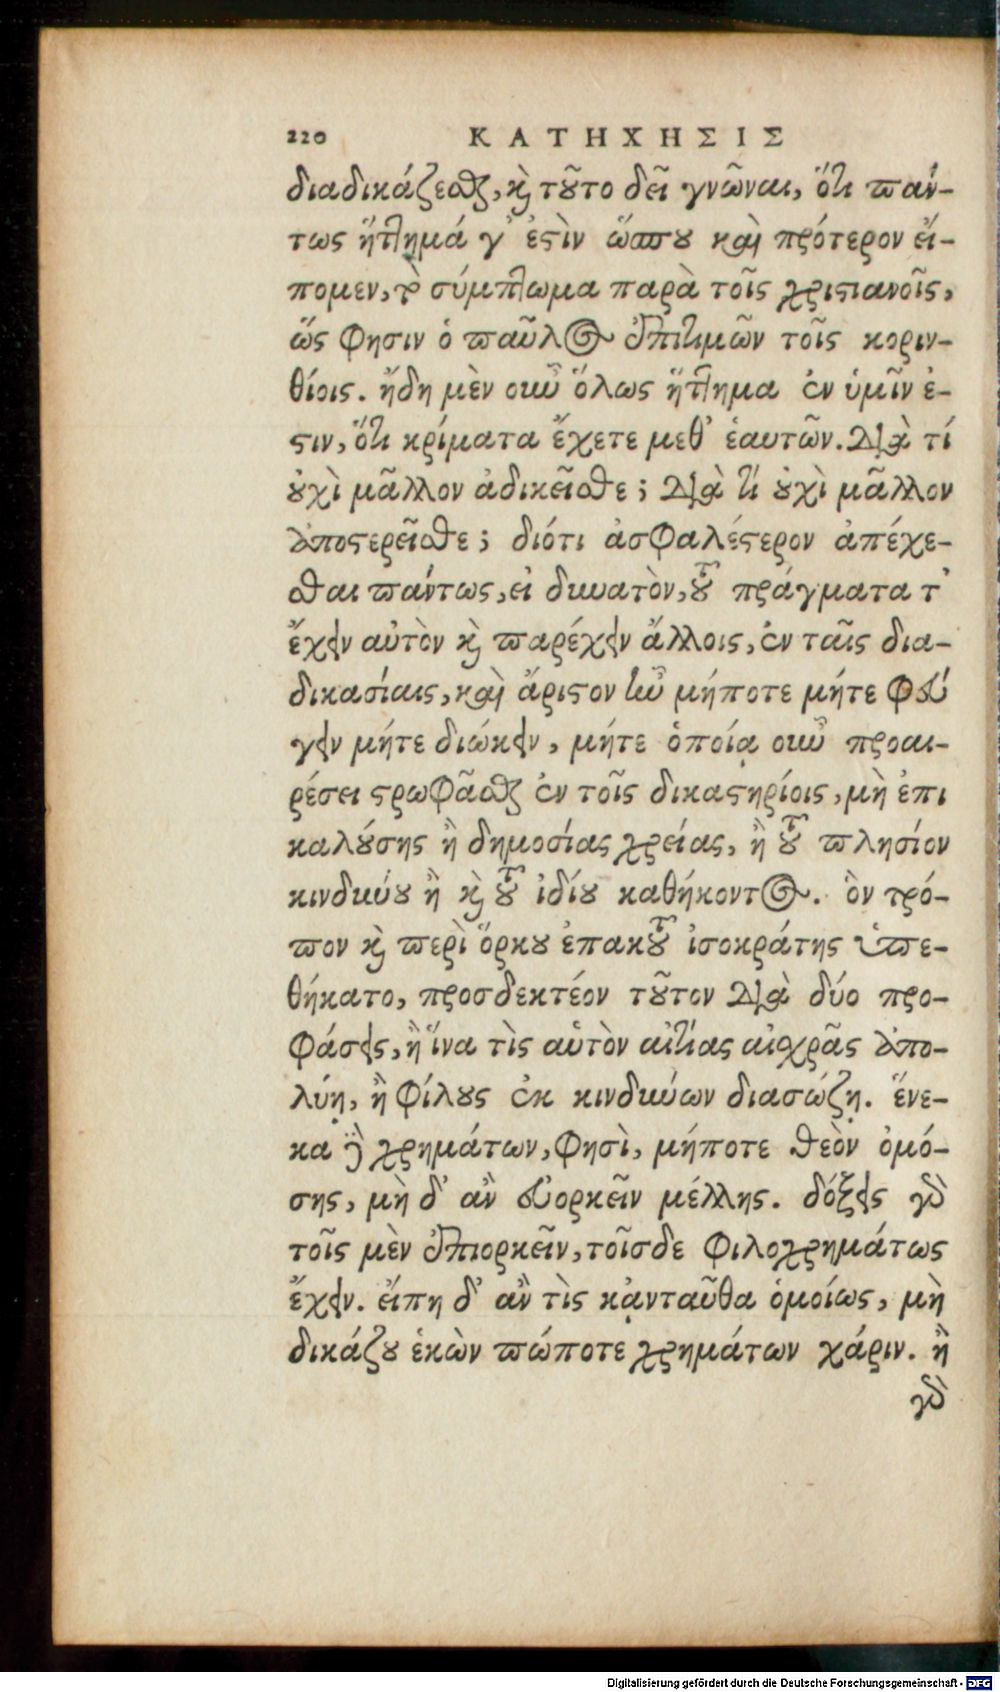 220 ΚΑΤΗΧΗΣΙΣ
διαδικάζεσθαι, καὶ τοῦτο δεῖ γνῶναι, ὅτι πάν-
τως ἥττημά γ’ ἐστὶν ὥσπου καὶ πρότερον εἴ-
πομεν, τὸ σύμπτωμα παρὰ τοῖς χριστιανοῖς,
ὥς φησιν ὁ παῦλος ἐπιτιμῶν τοῖς κοριν-
θίοις. ἤδη μὲν οὖν ὅλως ἥττημα ἐν ὑμῖν ἐ-
στιν, ὅτι κρίματα ἔχετε μεθ’ ἑαυτῶν. διὰ τί
οὐχὶ μᾶλλον ἀδικεῖσθε; διὰ τί οὐχὶ μᾶλλον
ἀποστερεῖσθε; διότι ἀσφαλέστερον ἀπέχε-
σθαι πάντως, εἰ δυνατὸν, τοῦ πράγματα τ’
ἔχειν αὐτὸν καὶ παρέχειν ἄλλοις, ἐν ταῖς δια-
δικασίαις, καὶ ἄριστον ἦν μήποτε μήτε φεύ
γειν μήτε διώκειν, μήτε ὁποίᾳ οὖν προαι-
ρέσει στρωφᾶσθαι ἐν τοῖς δικαστηρίοις, μὴ ἐπι
καλούσης ἢ δημοσίας χρείας, ἢ τοῦ πλησίον
κινδύνου ἢ καὶ τοῦ ἰδίου καθήκοντος. ὃν τρό-
πον καὶ περὶ ὅρκου ἐπακτοῦ ἰσοκράτης ὑπε-
θήκατο, προσδεκτέον τοῦτον διὰ δύο προ-
φάσεις, ἢ ἵνα τὶς αὑτὸν αἰτίας αἰσχρᾶς ἀπο-
λύῃ, ἢ φίλους ἐκ κινδύνων διασώζῃ. ἕνε-
κα δὲ χρημάτων, φησὶ, μήποτε θεὸν ὀμό-
σῃς, μὴ δ’ ἂν εὐορκεῖν μέλλῃς. δόξεις γὰρ
τοῖς μὲν ἐπιορκεῖν, τοῖσδε φιλοχρημάτως
ἔχειν. εἴπη δ’ ἂν τὶς κᾀνταῦθα ὁμοίως, μὴ
δικάζου ἑκὼν πώποτε χρημάτων χάριν. ἢ
γὰρ
Digitalisierung gefördert durch die Deutsche Forschungsgemeinschaft - DFG